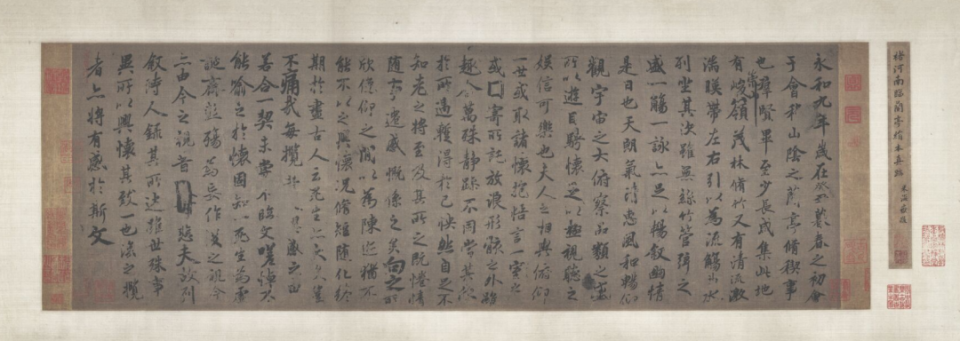 褚河南臨蘭亭絹本真跡
永和九年歲在癸丑暮春之初會
于會稽山陰之蘭亭脩稧事
也羣賢畢至少長咸集此地
有崇山峻嶺茂林脩竹又有清流激
湍暎帶左右引以為流觴曲水
列坐其次雖無絲竹管弦之
盛一觴一詠亦足以暢敘幽情
是日也天朗氣清惠風和暢仰
觀宇宙之大俯察品類之盛
所以遊目騁懷足以極視聽之
娛信可樂也夫人之相與俯仰
一世或取諸懷抱悟言一室之內
或因寄所託放浪形骸之外雖
趣舍萬殊靜躁不同當其欣
於所遇蹔得於己快然自足不
知老之將至及其所之既惓情
隨事遷感慨係之矣向之所
欣俛仰之閒以為陳迹猶不
能不以之興懷況脩短隨化終
期於盡古人云死生亦大矣豈
不痛哉每攬昔人興感之由
若合一契未嘗不臨文嗟悼不
能喻之於懷固知一死生為虛
誕齊彭殤為妄作後之視今
亦由今之視昔悲夫故列
敘時人錄其所述雖世殊事
異所以興懷其致一也後之攬
者亦將有感於斯文